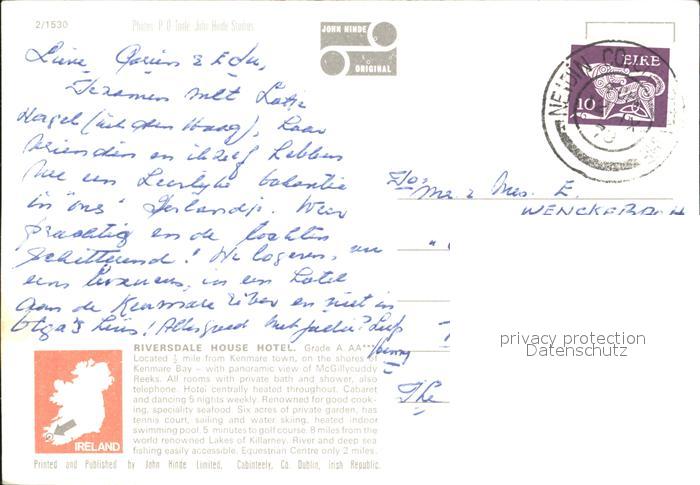 2/1530
Photo: P. O'Toole, John Hinde Studios.
JOHN HINDE
ORIGINAL
EIRE
10
Lieve & Edu,
Tezamen met Lotje
Hezel (uit den Haag), haar
vrienden en ikzelf hebben
we een heerlijke vakantie
in "ons" Ierlandje. Weer
prachtig en de luchten
schitterend! We logeren, nu
eens in een hotel
aan de Kenmare river en niet in
Olga's huis! Alles goed met jullie? Liefs
Mr. & Mrs. E.
WENCKEBACH
The
privacy protection
Datenschutz
RIVERSDALE HOUSE HOTEL. Grade A. AA***
Located ½ mile from Kenmare town, on the shores of
Kenmare Bay – with panoramic view of McGillycuddy
Reeks. All rooms with private bath and shower, also
telephone. Hotel centrally heated throughout. Cabaret
and dancing 5 nights weekly. Renowned for good cook-
ing, speciality seafood. Six acres of private garden, has
tennis court, sailing and water skiing, heated indoor
swimming pool. 5 minutes to golf course. 8 miles from the
world renowned Lakes of Killarney. River and deep sea
fishing easily accessible. Equestrian Centre only 2 miles.
IRELAND
Printed and Published by John Hinde Limited, Cabinteely, Co. Dublin, Irish Republic.